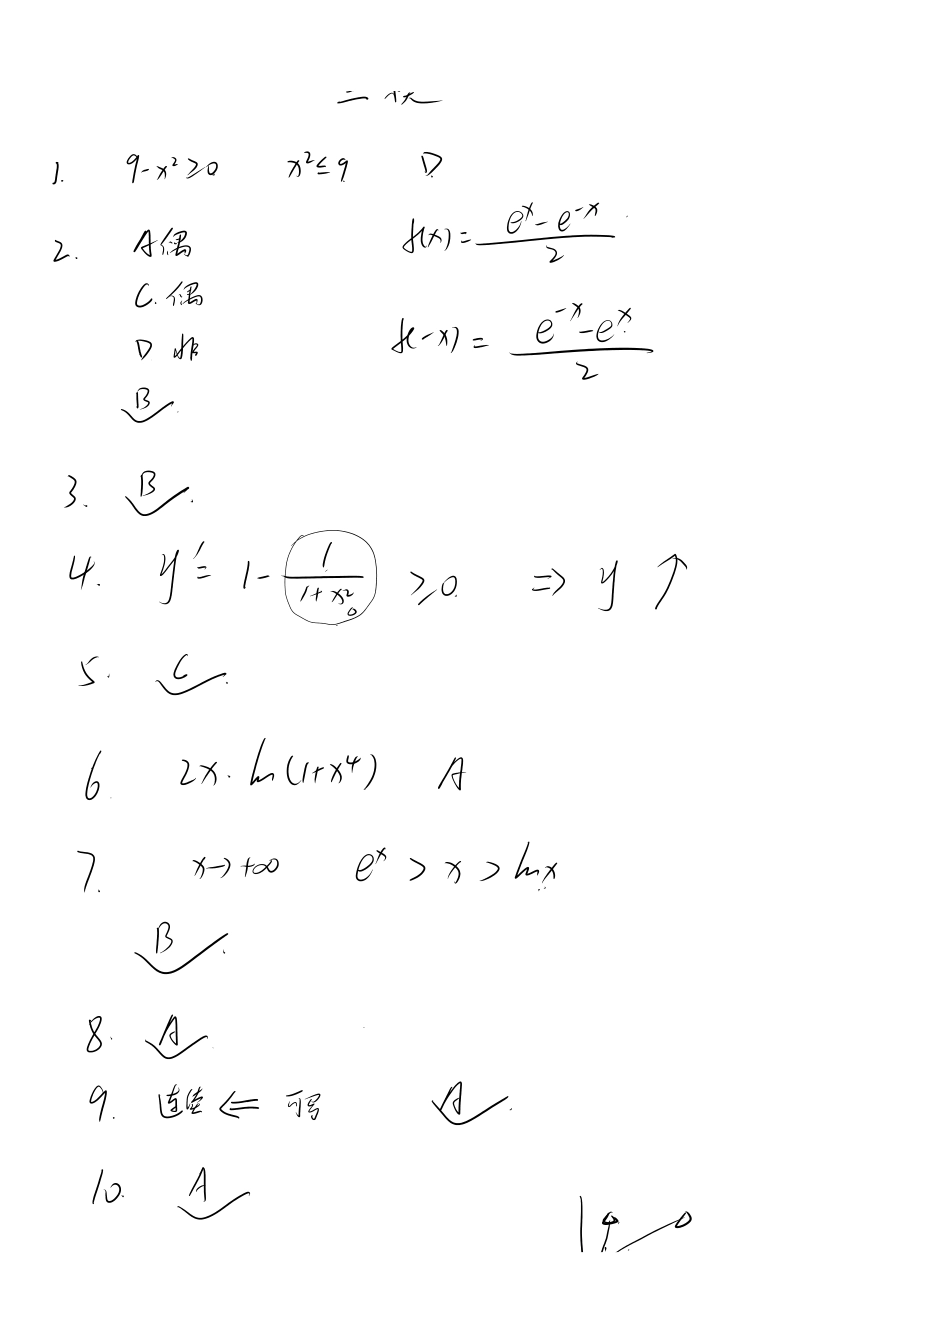 1. 9-x²≥0 x²≤9 D
2. A偶 f(x)=(eˣ-e⁻ˣ)/2
C.偶 f(-x)=(e⁻ˣ-eˣ)/2
D 非
B
3. B
4. y'=1-1/(1+x²) ≥0 ⇒ y ↑
5. C
6 2x·ln(1+x⁴) A
7. x→+∞ eˣ>x>lnx
B
8. A
9. 连续 ⇐ 可导 A
10. A